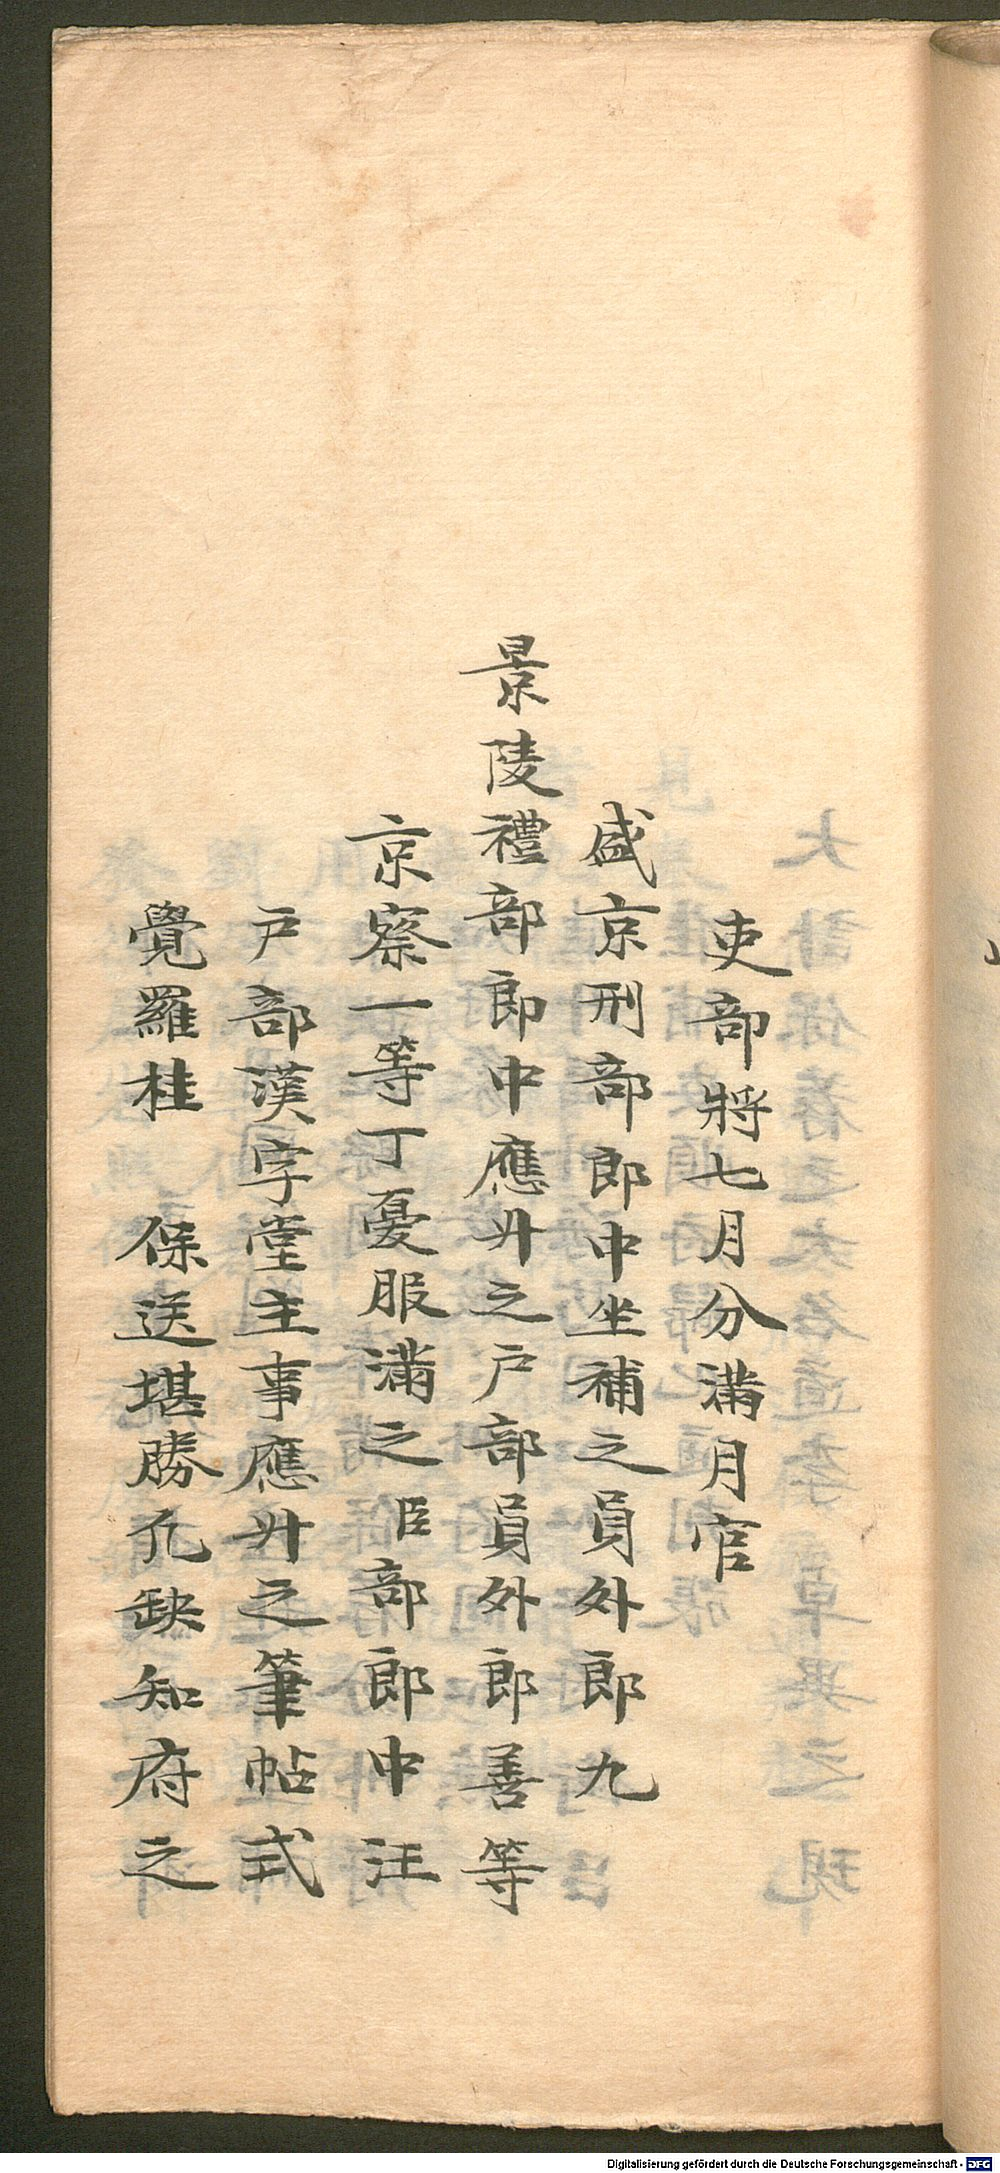 吏部將七月分滿月官
盛京刑部郎中坐補之員外郎九
景陵禮部郎中應升之戶部員外郎善等
京察一等丁憂服滿之臣部郎中汪
戶部漢字堂主事應升之筆帖式
覺羅桂 保送堪勝凢缺知府之
Digitalisierung gefördert durch die Deutsche Forschungsgemeinschaft - DFG